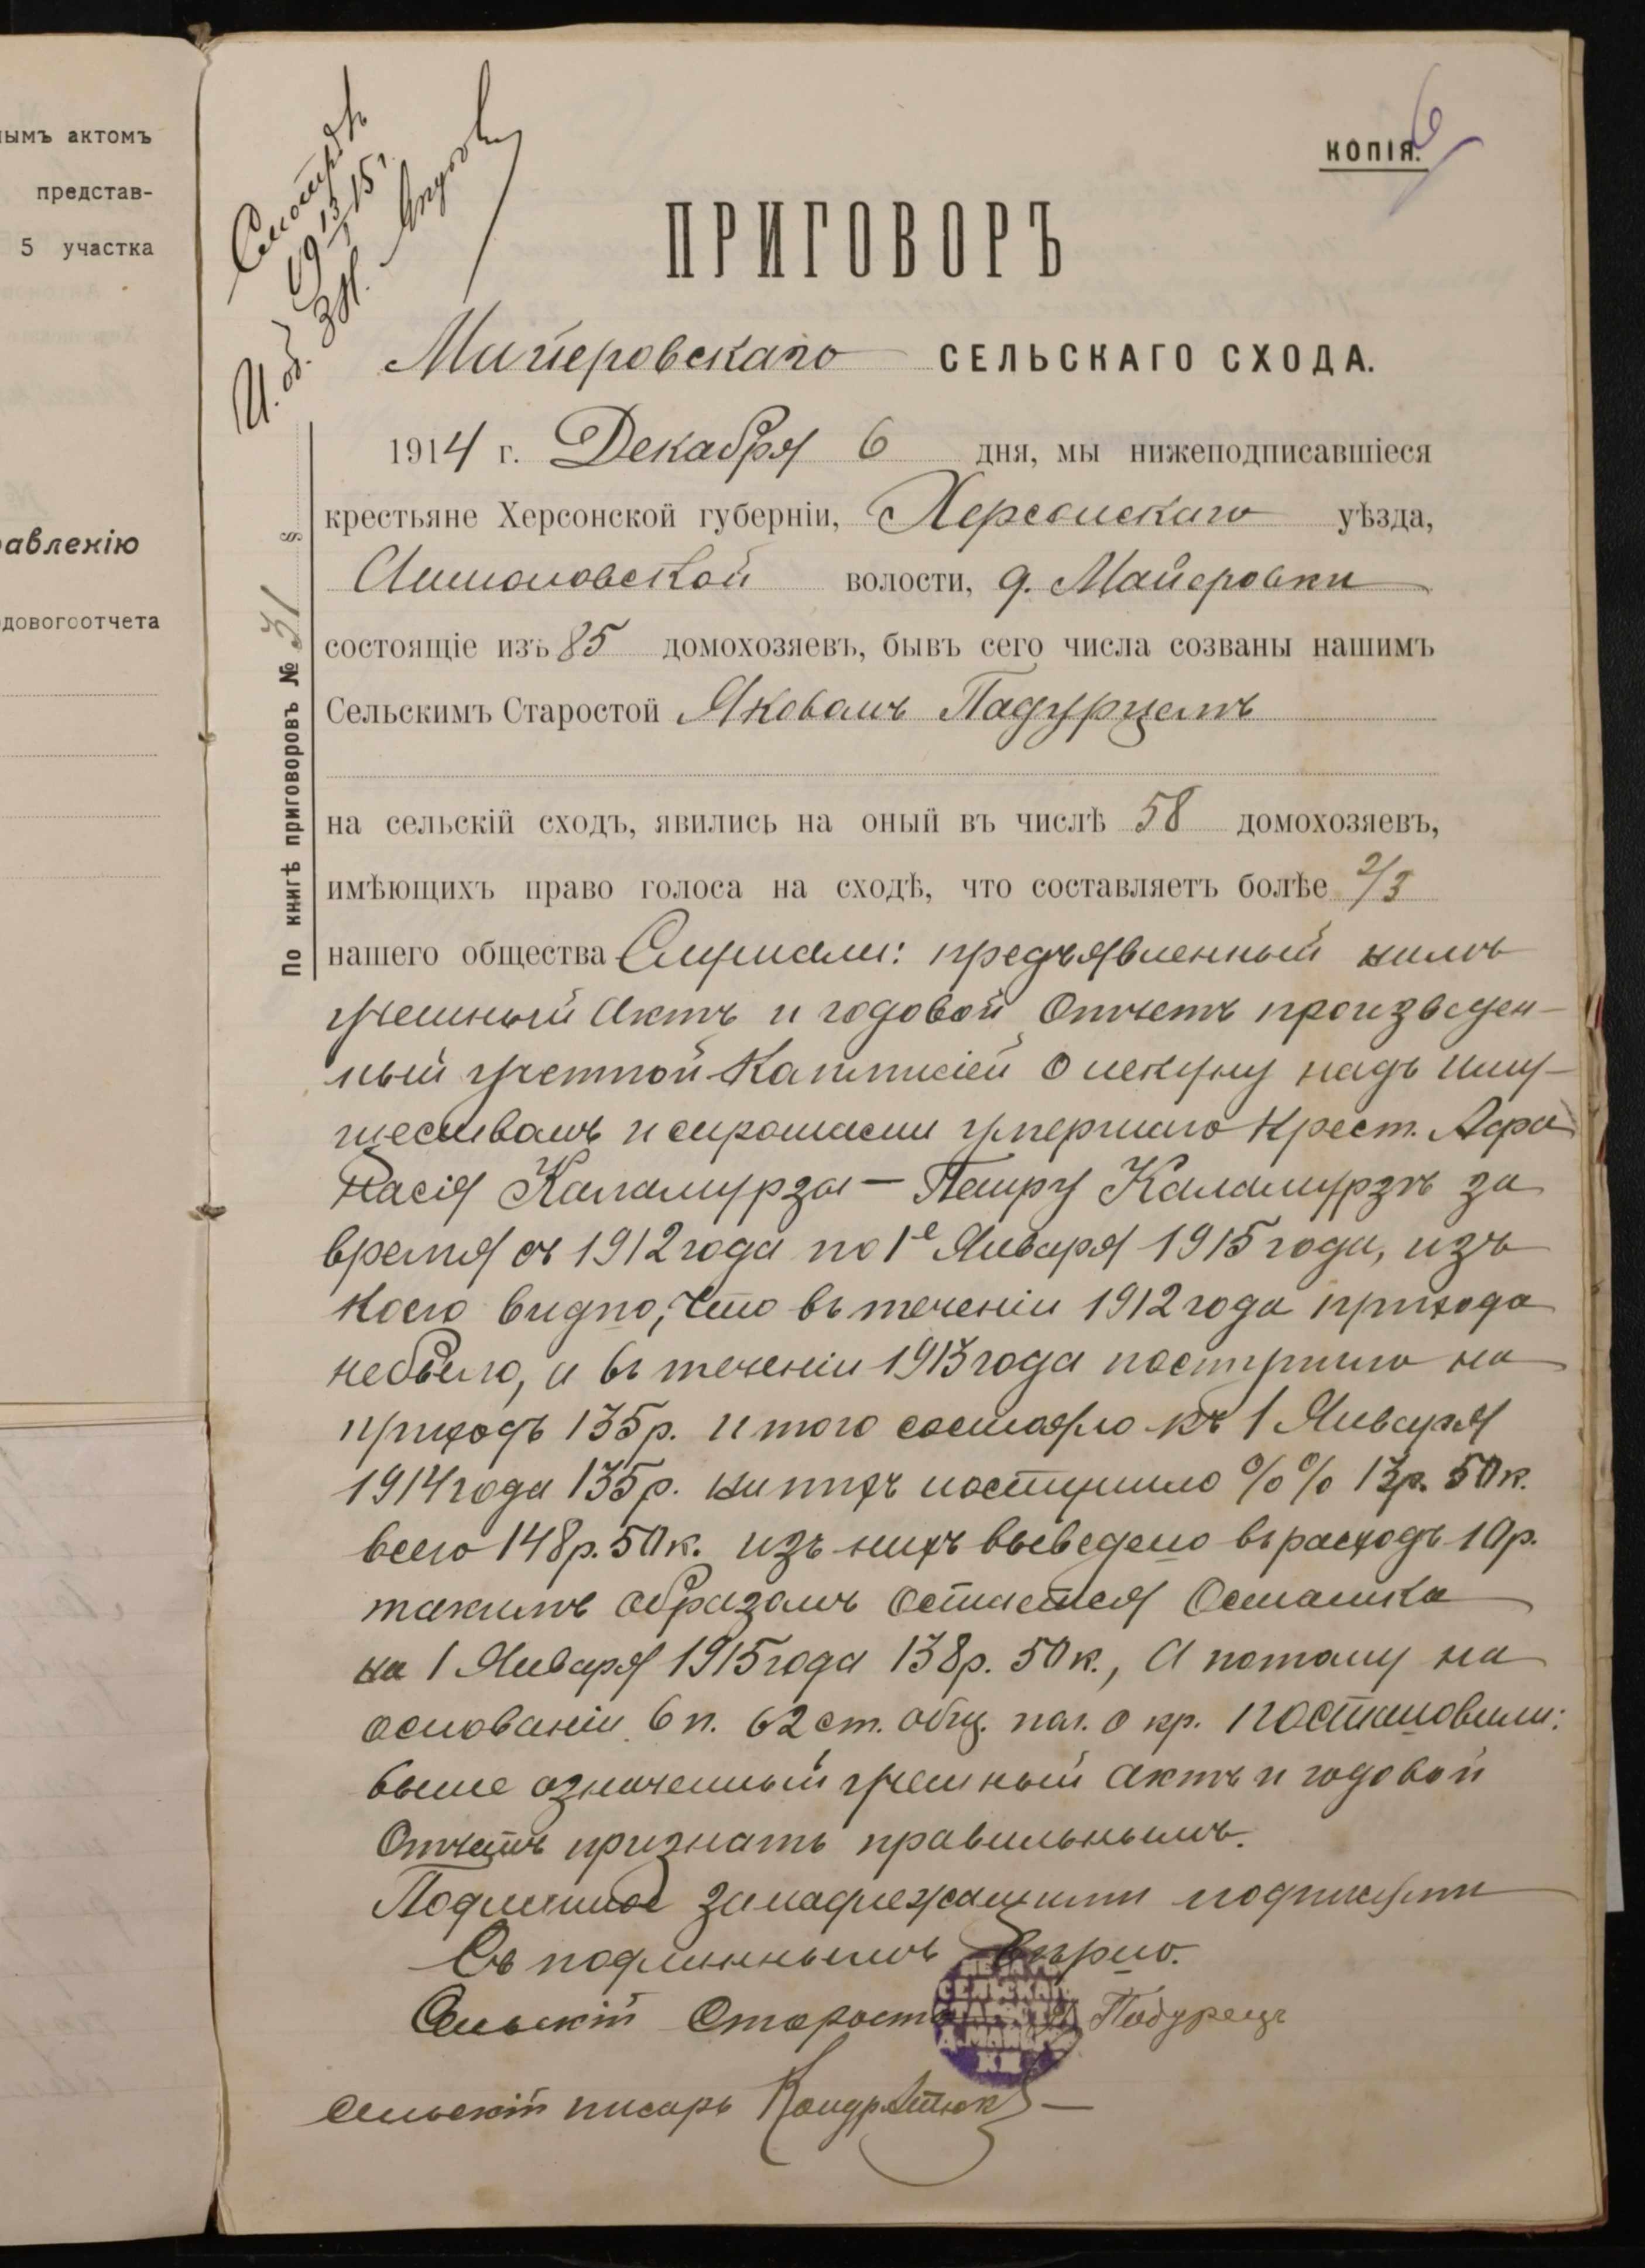 нымъ актомъ
представ-
5 участка
авленію
довогоотчета
Смотрѣлъ
19 13/I 15 г.
И. об. З. Н.
6
КОПІЯ.
ПРИГОВОРЪ
Майеровскаго СЕЛЬСКАГО СХОДА.
По книгѣ приговоровъ № 31 §
1914 г. Декабря 6 дня, мы нижеподписавшіеся
крестьяне Херсонской губерніи, Херсонскаго уѣзда,
Антоновской волости, д. Майеровки
состоящіе изъ 85 домохозяевъ, бывъ сего числа созваны нашимъ
Сельскимъ Старостой Яковомъ Падурцемъ
на сельскій сходъ, явились на оный въ числѣ 58 домохозяевъ,
имѣющихъ право голоса на сходѣ, что составляетъ болѣе 2/3
нашего общества Слушали: предъявленный намъ
учетный Актъ и годовой Отчетъ произведен-
ный учетной Коммисіей Опекуну надъ иму-
ществомъ и сиротами умершаго Крест. Афа
насія Каламурза — Петру Каламурзѣ за
время съ 1912 года по 1е Января 1915 года, изъ
коего видно, что въ теченіи 1912 года прихода
небыло, а въ теченіи 1913 года поступило на
приходъ 135 р. итого состояло къ 1 Января
1914 года 135 р. на нихъ поступило %% 13 р. 50 к.
всего 148 р. 50 к. изъ нихъ выведено въ расходъ 10 р.
такимъ образомъ остается Остатка
на 1 Января 1915 года 138 р. 50 к., А потому на
основаніи 6 п. 62 ст. общ. пол. о кр. постановили:
выше означенный учетный актъ и годовой
Отчетъ признать правильнымъ.
Подлинное за надлежащими подписями
Съ подлиннымъ Вѣрно.
Сельскій Староста Я Подурецъ
Сельскій писарь Кондратюк